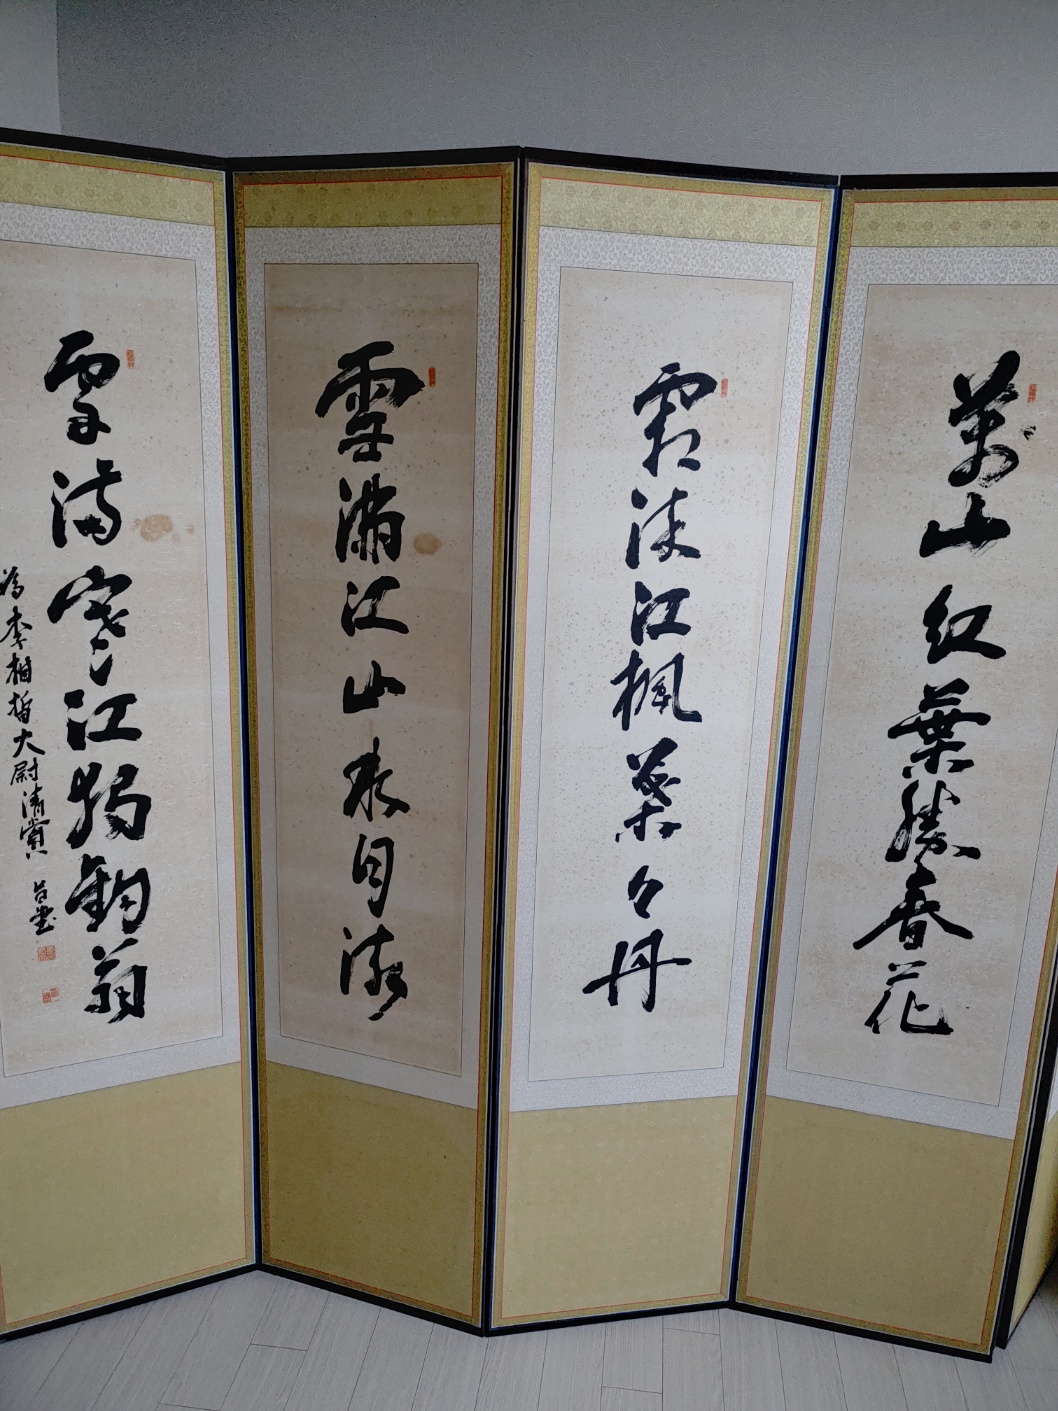 萬山紅葉勝春花
霜染江楓葉々丹
雪滿江山夜月流
雪滿寒江獨釣翁
為李相哲大尉清賞